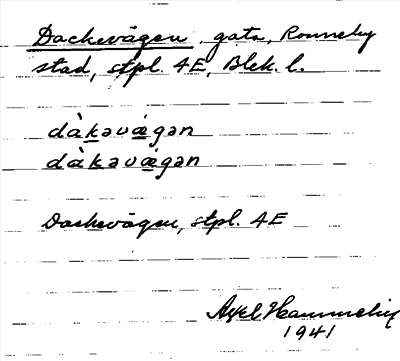 Dackevägen, gata, Ronneby
stad, stpl. 4E, Blek. l.
dàkəvägən
dàkəvägən
Dackevägen, stpl. 4E
Axel
1941